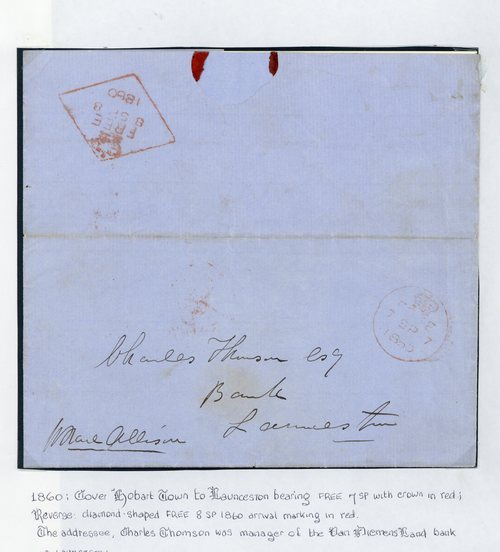 FREE
8 SP
1860
7 SP
1860
Charles Thomson esq
Bank
Launceston
Allison
1860: Cover Hobart Town to Launceston bearing FREE 7 SP with crown in red;
Reverse: diamond-shaped FREE 8 SP 1860 arrival marking in red.
The addressee, Charles Thomson was manager of the Van Diemens Land bank